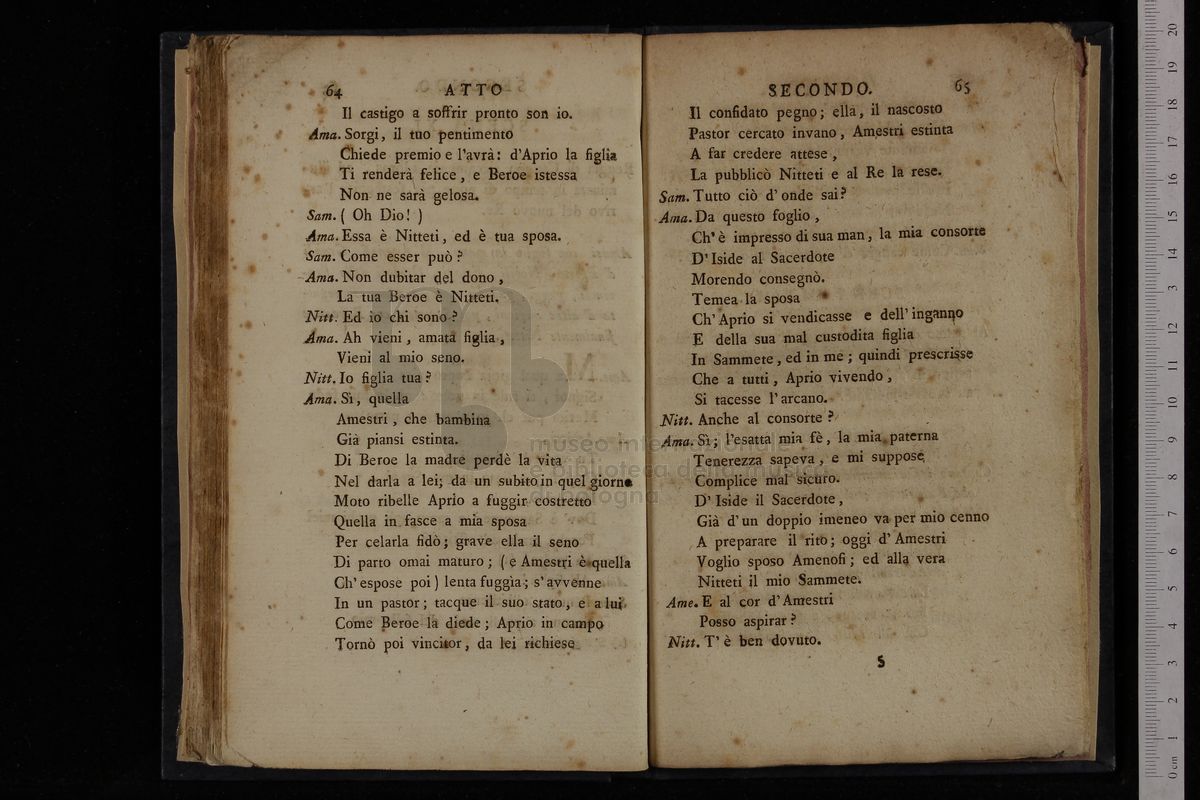 64 ATTO
Il castigo a soffrir pronto son io.
Ama. Sorgi, il tuo pentimento
Chiede premio e l'avrà: d'Aprio la figlia
Ti renderà felice, e Beroe istessa
Non ne sarà gelosa.
Sam. ( Oh Dio! )
Ama. Essa è Nitteti, ed è tua sposa.
Sam. Come esser può?
Ama. Non dubitar del dono,
La tua Beroe è Nitteti.
Nitt. Ed io chi sono?
Ama. Ah vieni, amata figlia,
Vieni al mio seno.
Nitt. Io figlia tua?
Ama. Sì, quella
Amestri, che bambina
Già piansi estinta.
Di Beroe la madre perdè la vita
Nel darla a lei; da un subito in quel giorno
Moto ribelle Aprio a fuggir costretto
Quella in fasce a mia sposa
Per celarla fidò; grave ella il seno
Di parto omai maturo; (e Amestri è quella
Ch'espose poi) lenta fuggìa; s'avvenne
In un pastor; tacque il suo stato, e a lui
Come Beroe la diede; Aprio in campo
Tornò poi vincitor, da lei richiese
SECONDO. 65
Il confidato pegno; ella, il nascosto
Pastor cercato invano, Amestri estinta
A far credere attese,
La pubblicò Nitteti e al Re la rese.
Sam. Tutto ciò d'onde sai?
Ama. Da questo foglio,
Ch'è impresso di sua man, la mia consorte
D'Iside al Sacerdote
Morendo consegnò.
Temea la sposa
Ch'Aprio si vendicasse e dell'inganno
E della sua mal custodita figlia
In Sammete, ed in me; quindi prescrisse
Che a tutti, Aprio vivendo,
Si tacesse l'arcano.
Nitt. Anche al consorte?
Ama. Sì; l'esatta mia fè, la mia paterna
Tenerezza sapeva, e mi suppose
Complice mal sicuro.
D'Iside il Sacerdote,
Già d'un doppio imeneo va per mio cenno
A preparare il rito; oggi d'Amestri
Voglio sposo Amenofi; ed alla vera
Nitteti il mio Sammete.
Ame. E al cor d'Amestri
Posso aspirar?
Nitt. T'è ben dovuto.
S
museo internazionale
e biblioteca della musica
di bologna
0 cm 1 2 3 4 5 6 7 8 9 10 11 12 13 14 15 16 17 18 19 20